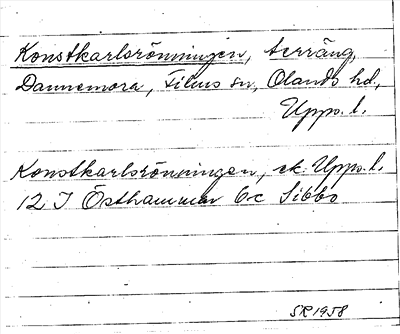 Konstkarlsrönningen, terräng,
Dannemora, Films sn, Olands hd,
Upps. l.
Konstkarlsrönningen, ek. Upps. l.
12 I Östhammar 6c Sibbo
SR 1958